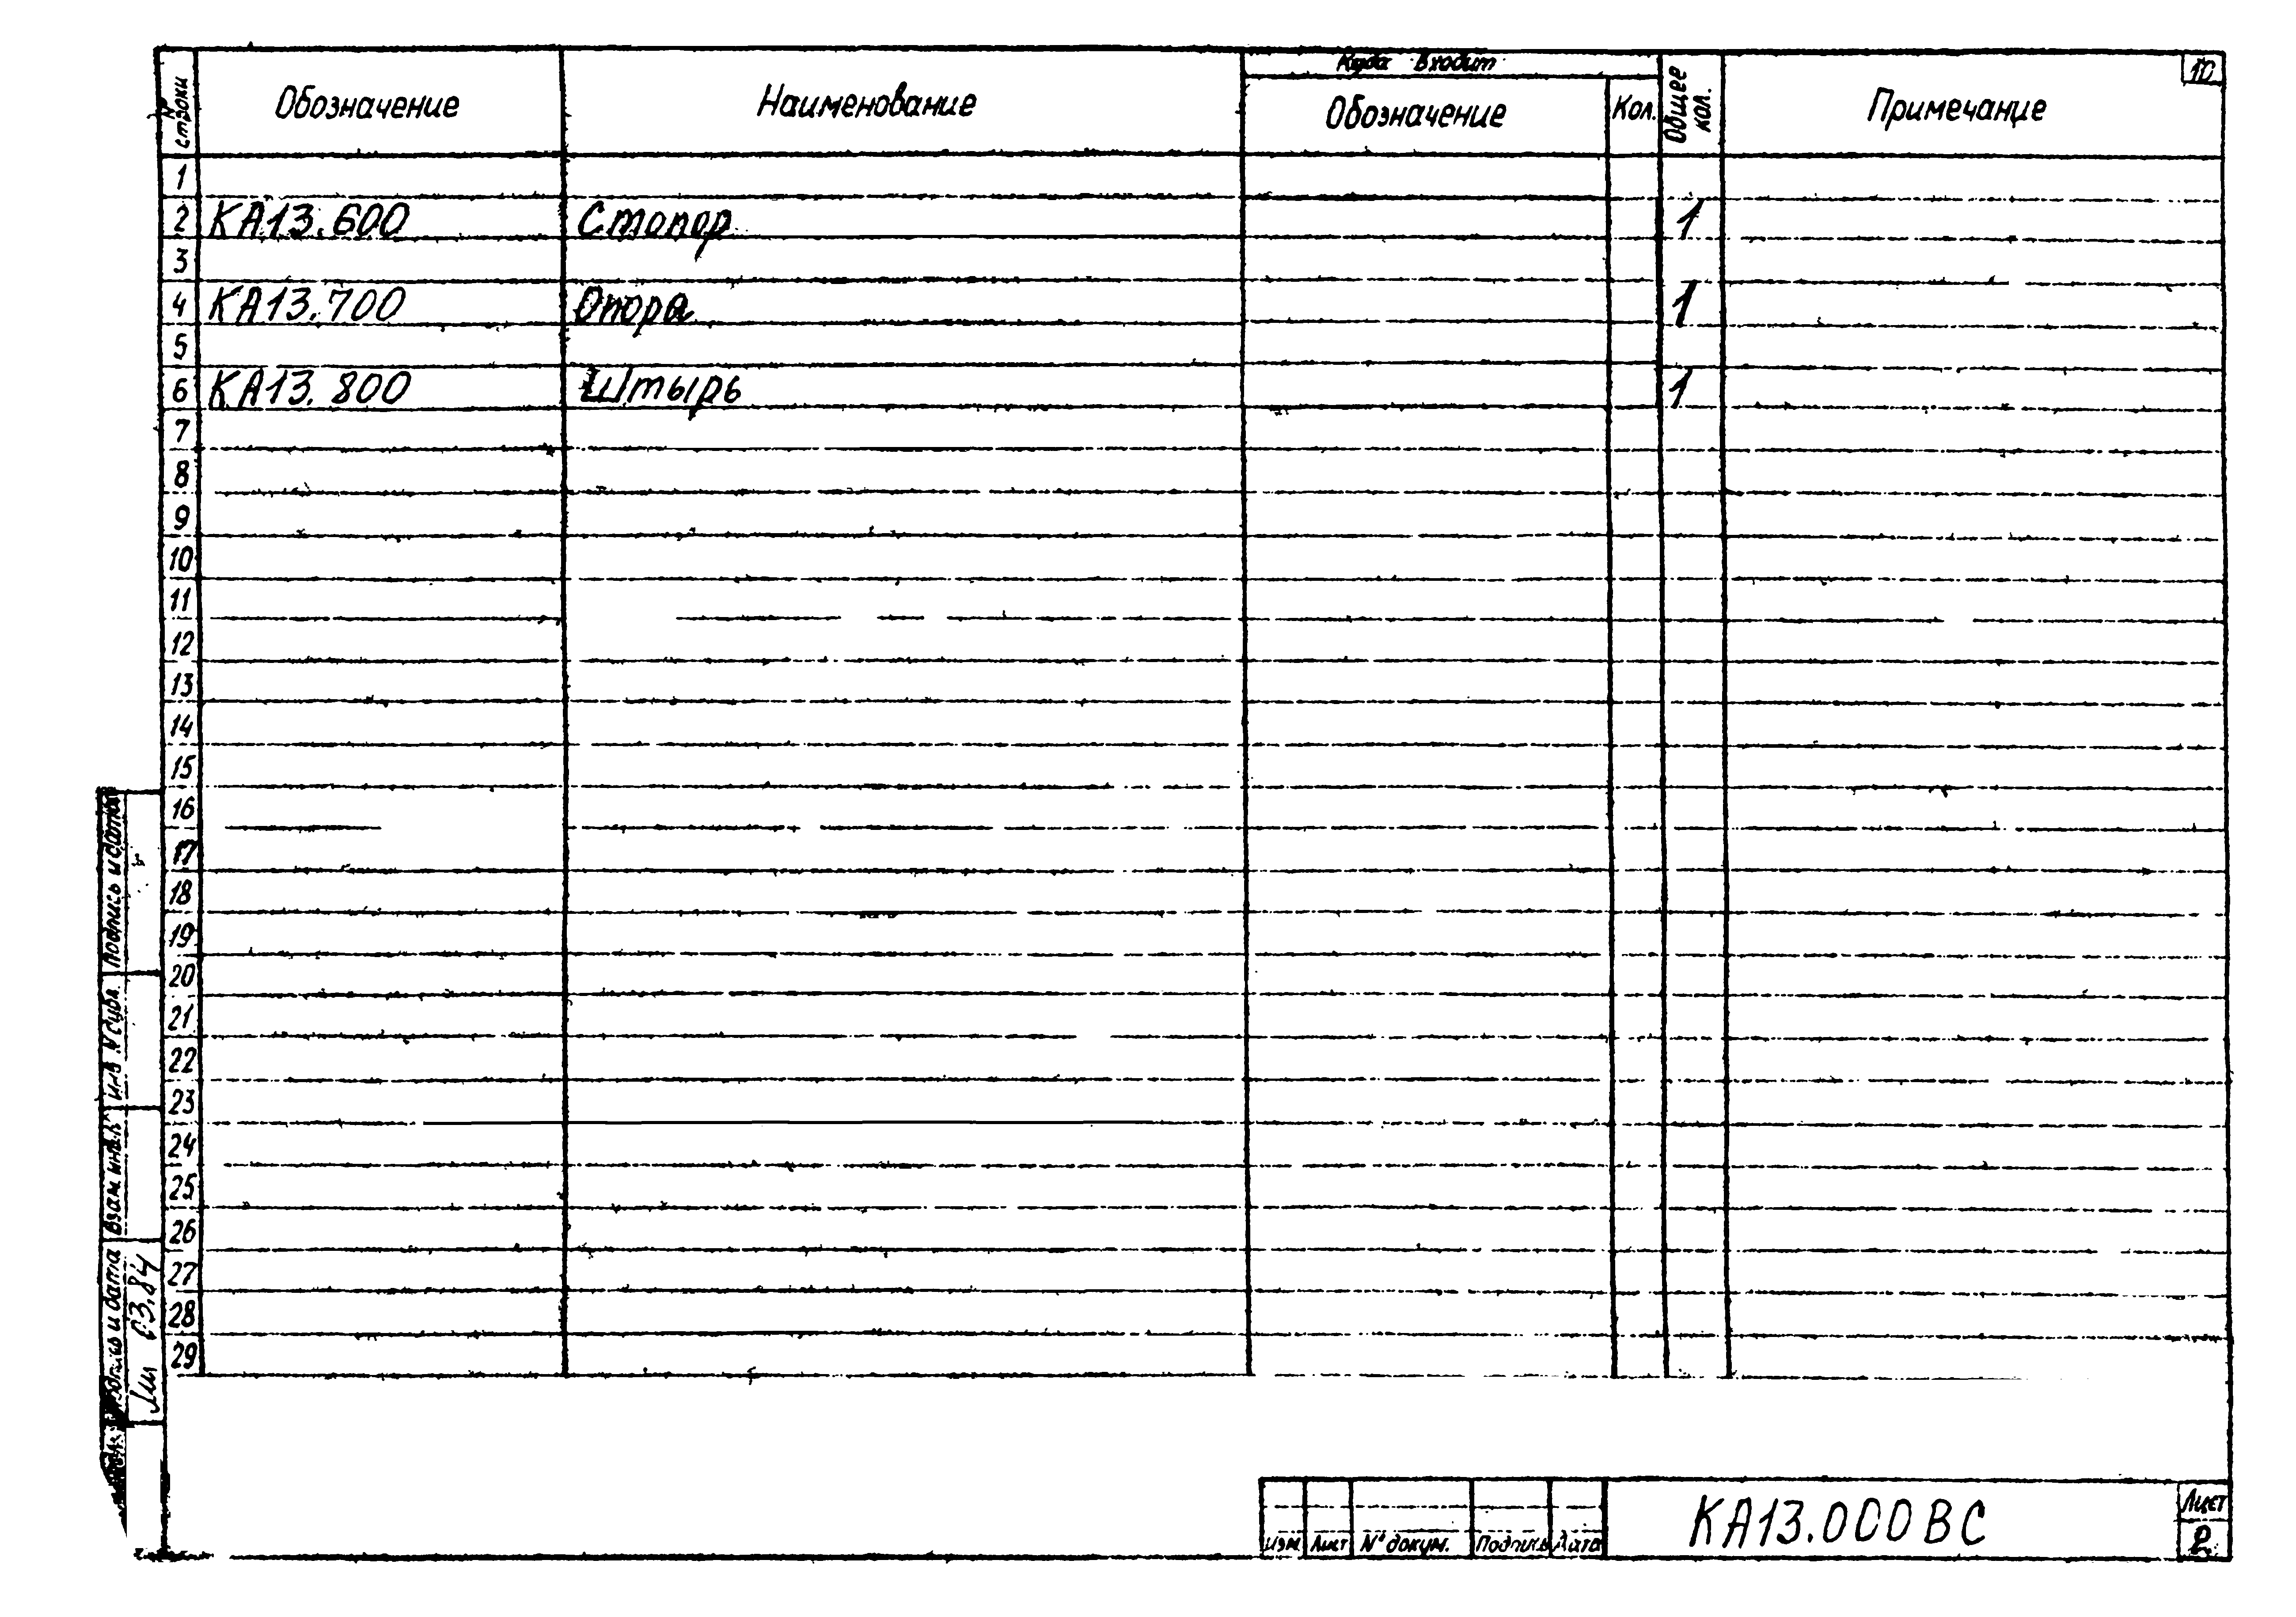 № строки Обозначение Наименование Куда входит Обозначение Кол. Общее кол. Примечание 10
1
2 КА13.600 Стопор 1
3
4 КА13.700 Опора 1
5
6 КА13.800 Штырь 1
7
8
9
10
11
12
13
14
15
16
17
18
19
20
21
22
23
24
25
26
27
28
29
Подпись и дата
Инв. № дубл.
Взам инв. №
Подпись и дата
03.84
Изм Лист № докум. Подпись Дата
КА13.000ВС
Лист
2